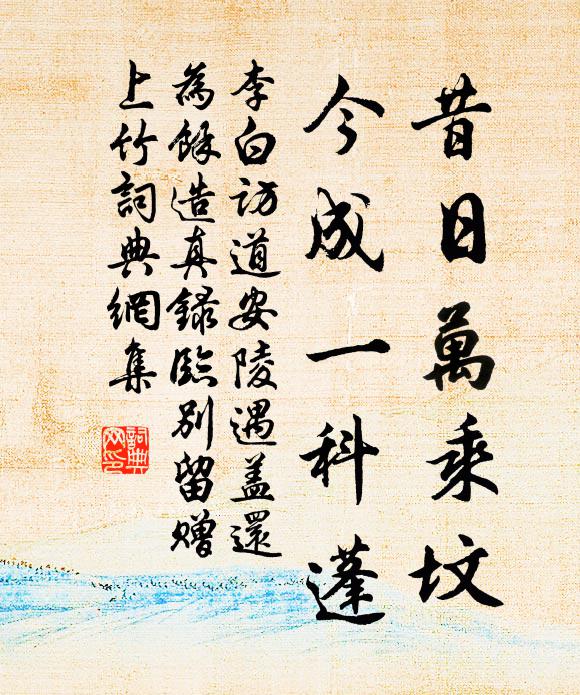 昔日萬乘墳
今成一科蓬
李白訪道安陵遇蓋還
為餘造真錄臨別留贈
上竹詞典網集
詞典网印